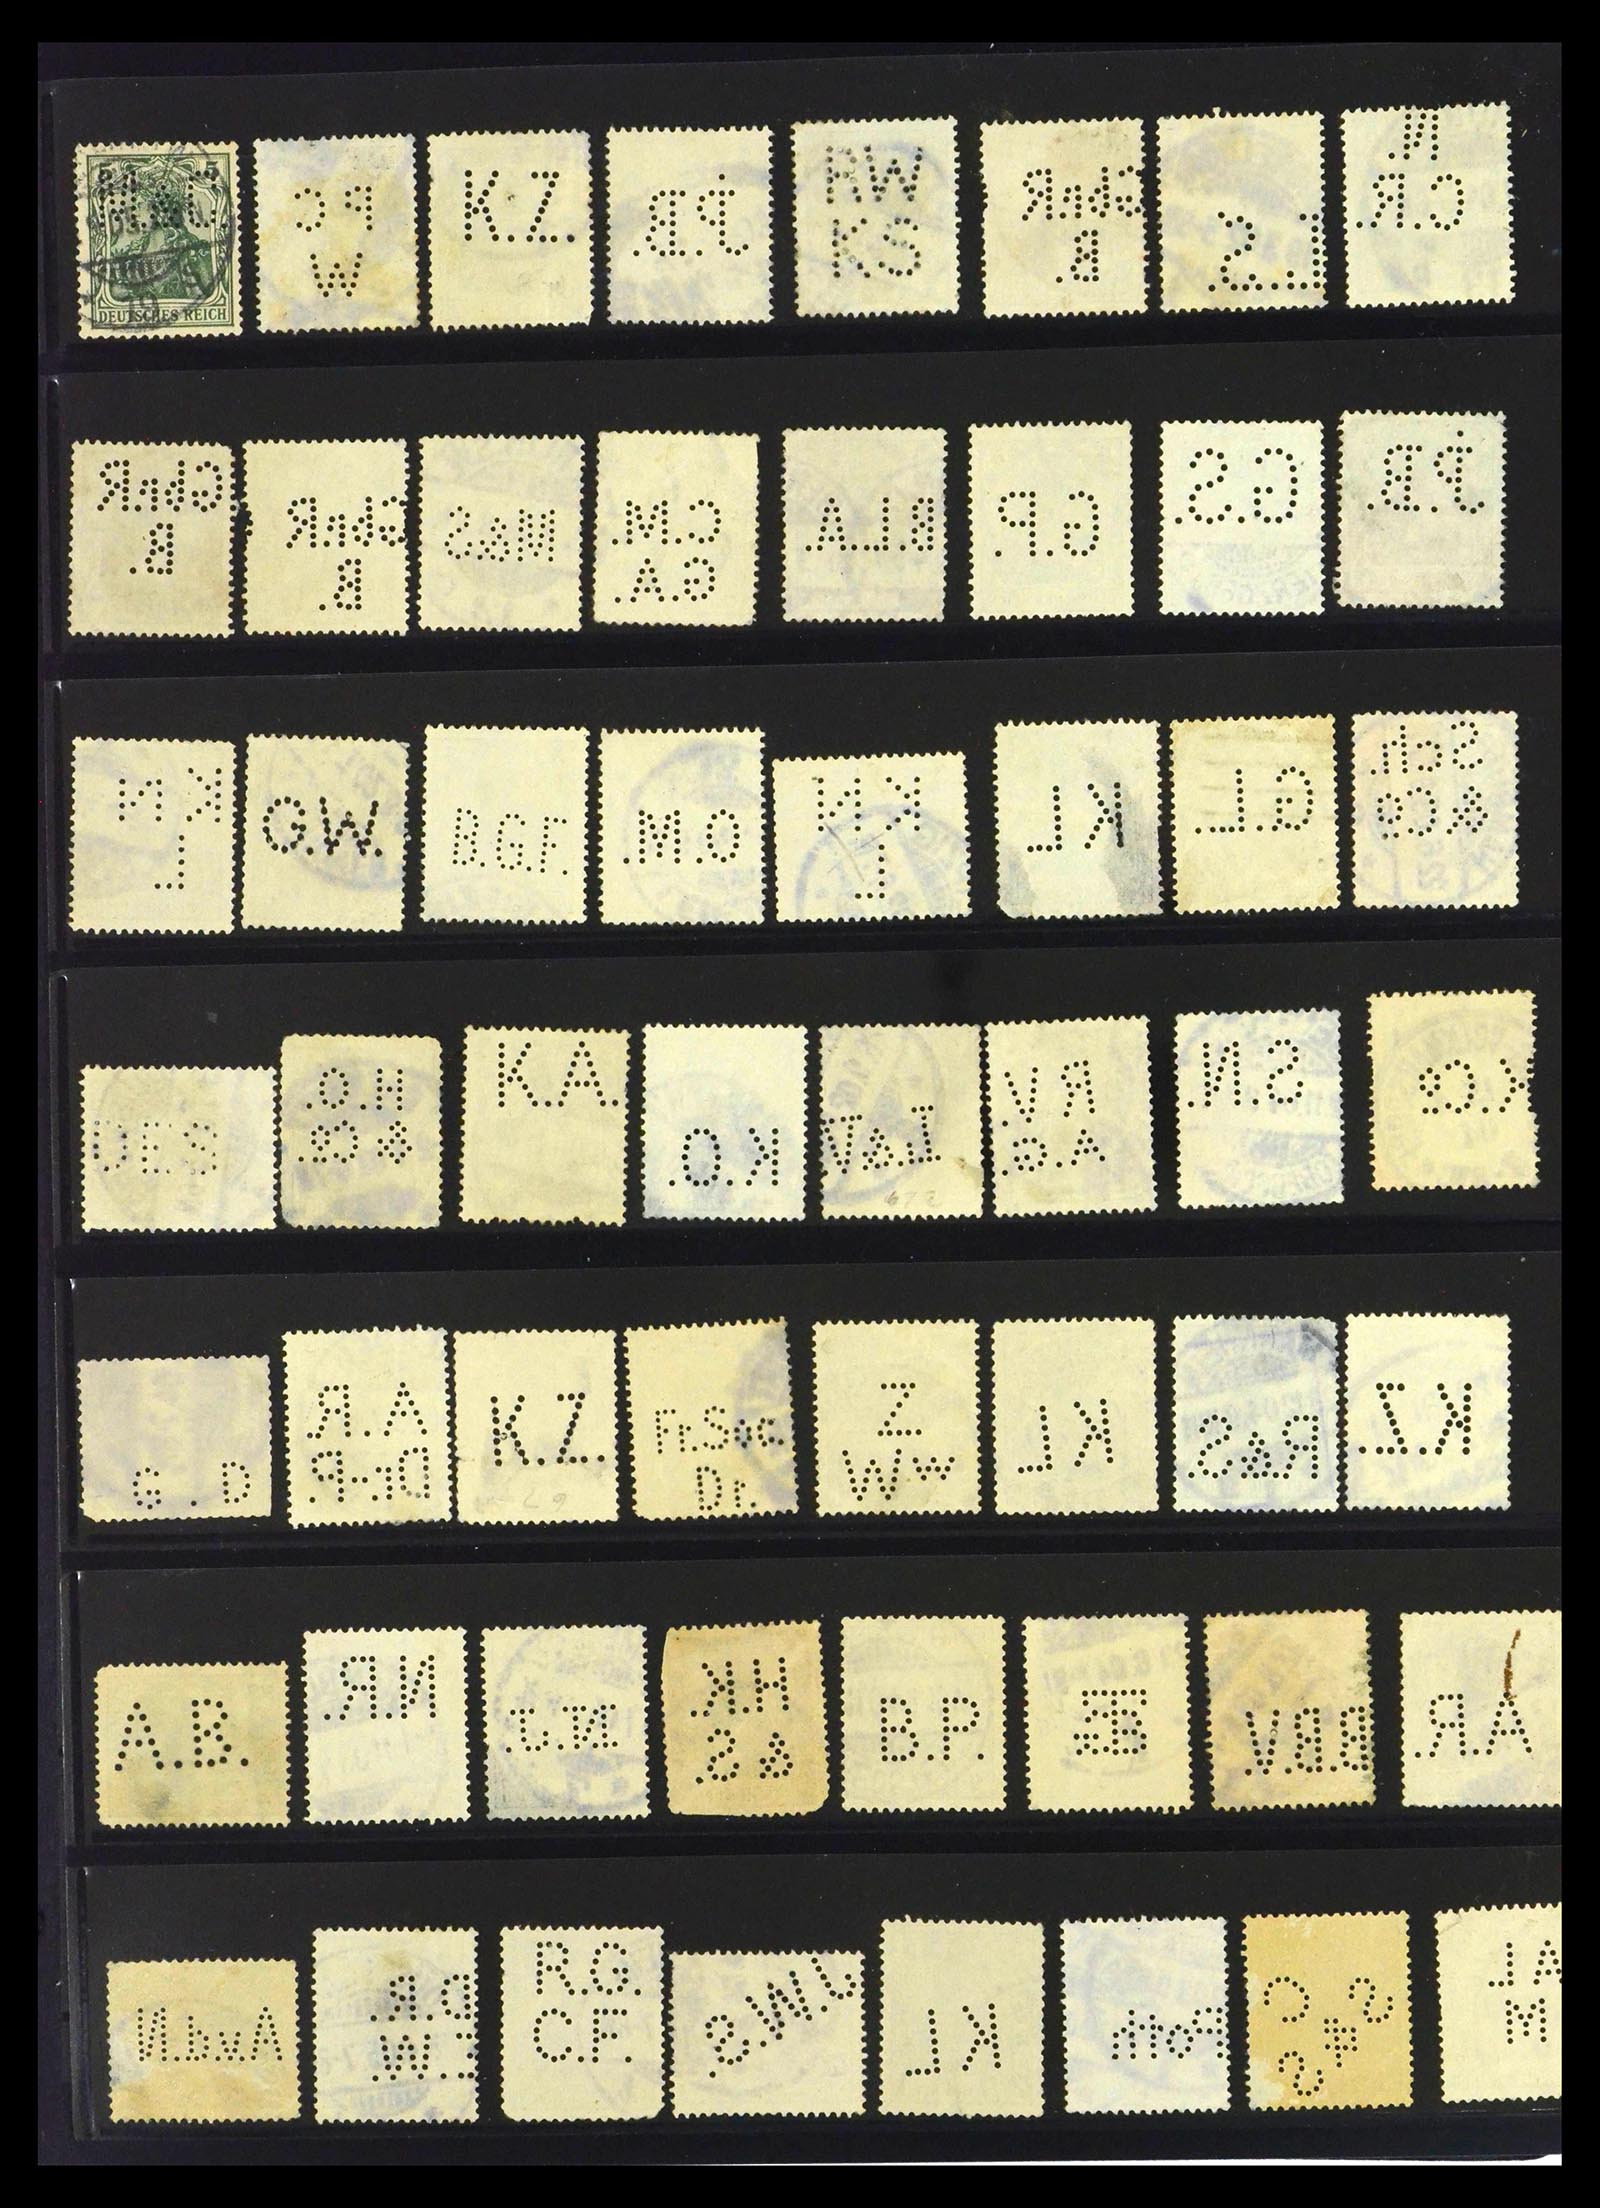 5 5
M.&C.
DEUTSCHES REICH
P C
W
K.Z.
J.B.
RW
KS
GbmR
B.
L.S.
N.
C.R.
GbmR
B.
GbmR
B.
M&S
C.M.
G.A.
B.L.A.
G.P.
G.S.
J.B.
K N
L
G.W.
B.G.F.
O.M.
K N
L
K L
G.L.
Sch.
& Co
DES
H.O.
& Co.
K.A.
K.O.
R V.
A G.
S.N.
K.Co
G . D
A.R.
D.-P.
K.Z.
Fr.Soc.
Dr.
Z
Ww
K L
R&S.
K.Z.
A.B.
N.R.
H.K.
& S.
B.P.
B.B.V.
A.R.
A.v.d.N.
D.R.
E.W.
R.G.
C.F.
K L
Roth
S C
&
S
A L
M